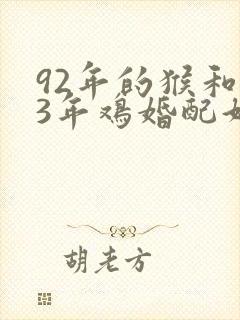 92年的猴和
3年鸡婚配
胡老方